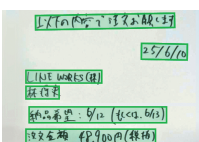 以下の内容で注文お願いします
25/6/10
LINE WORKS(株)
林
納品希望：6/12 (もしくは、6/13)
注文金額 48,900円(税抜)